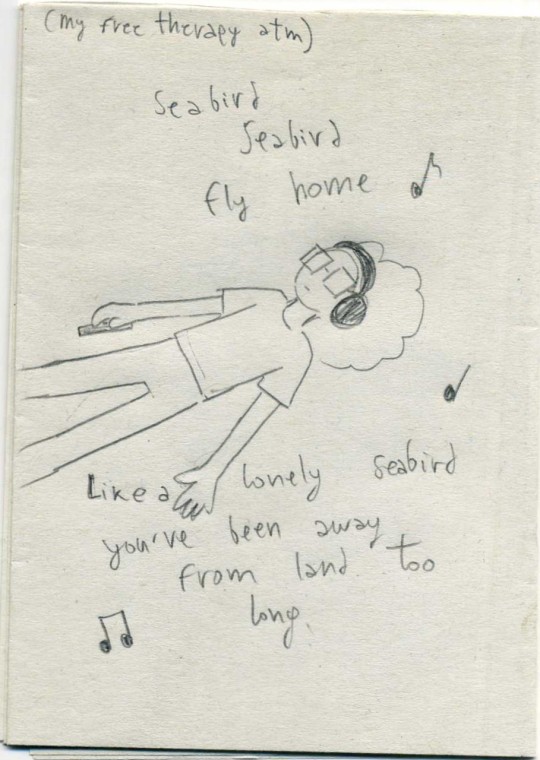 (my free therapy atm)
Seabird
Seabird
fly home
Like a lonely seabird
you've been away
from land too
long.